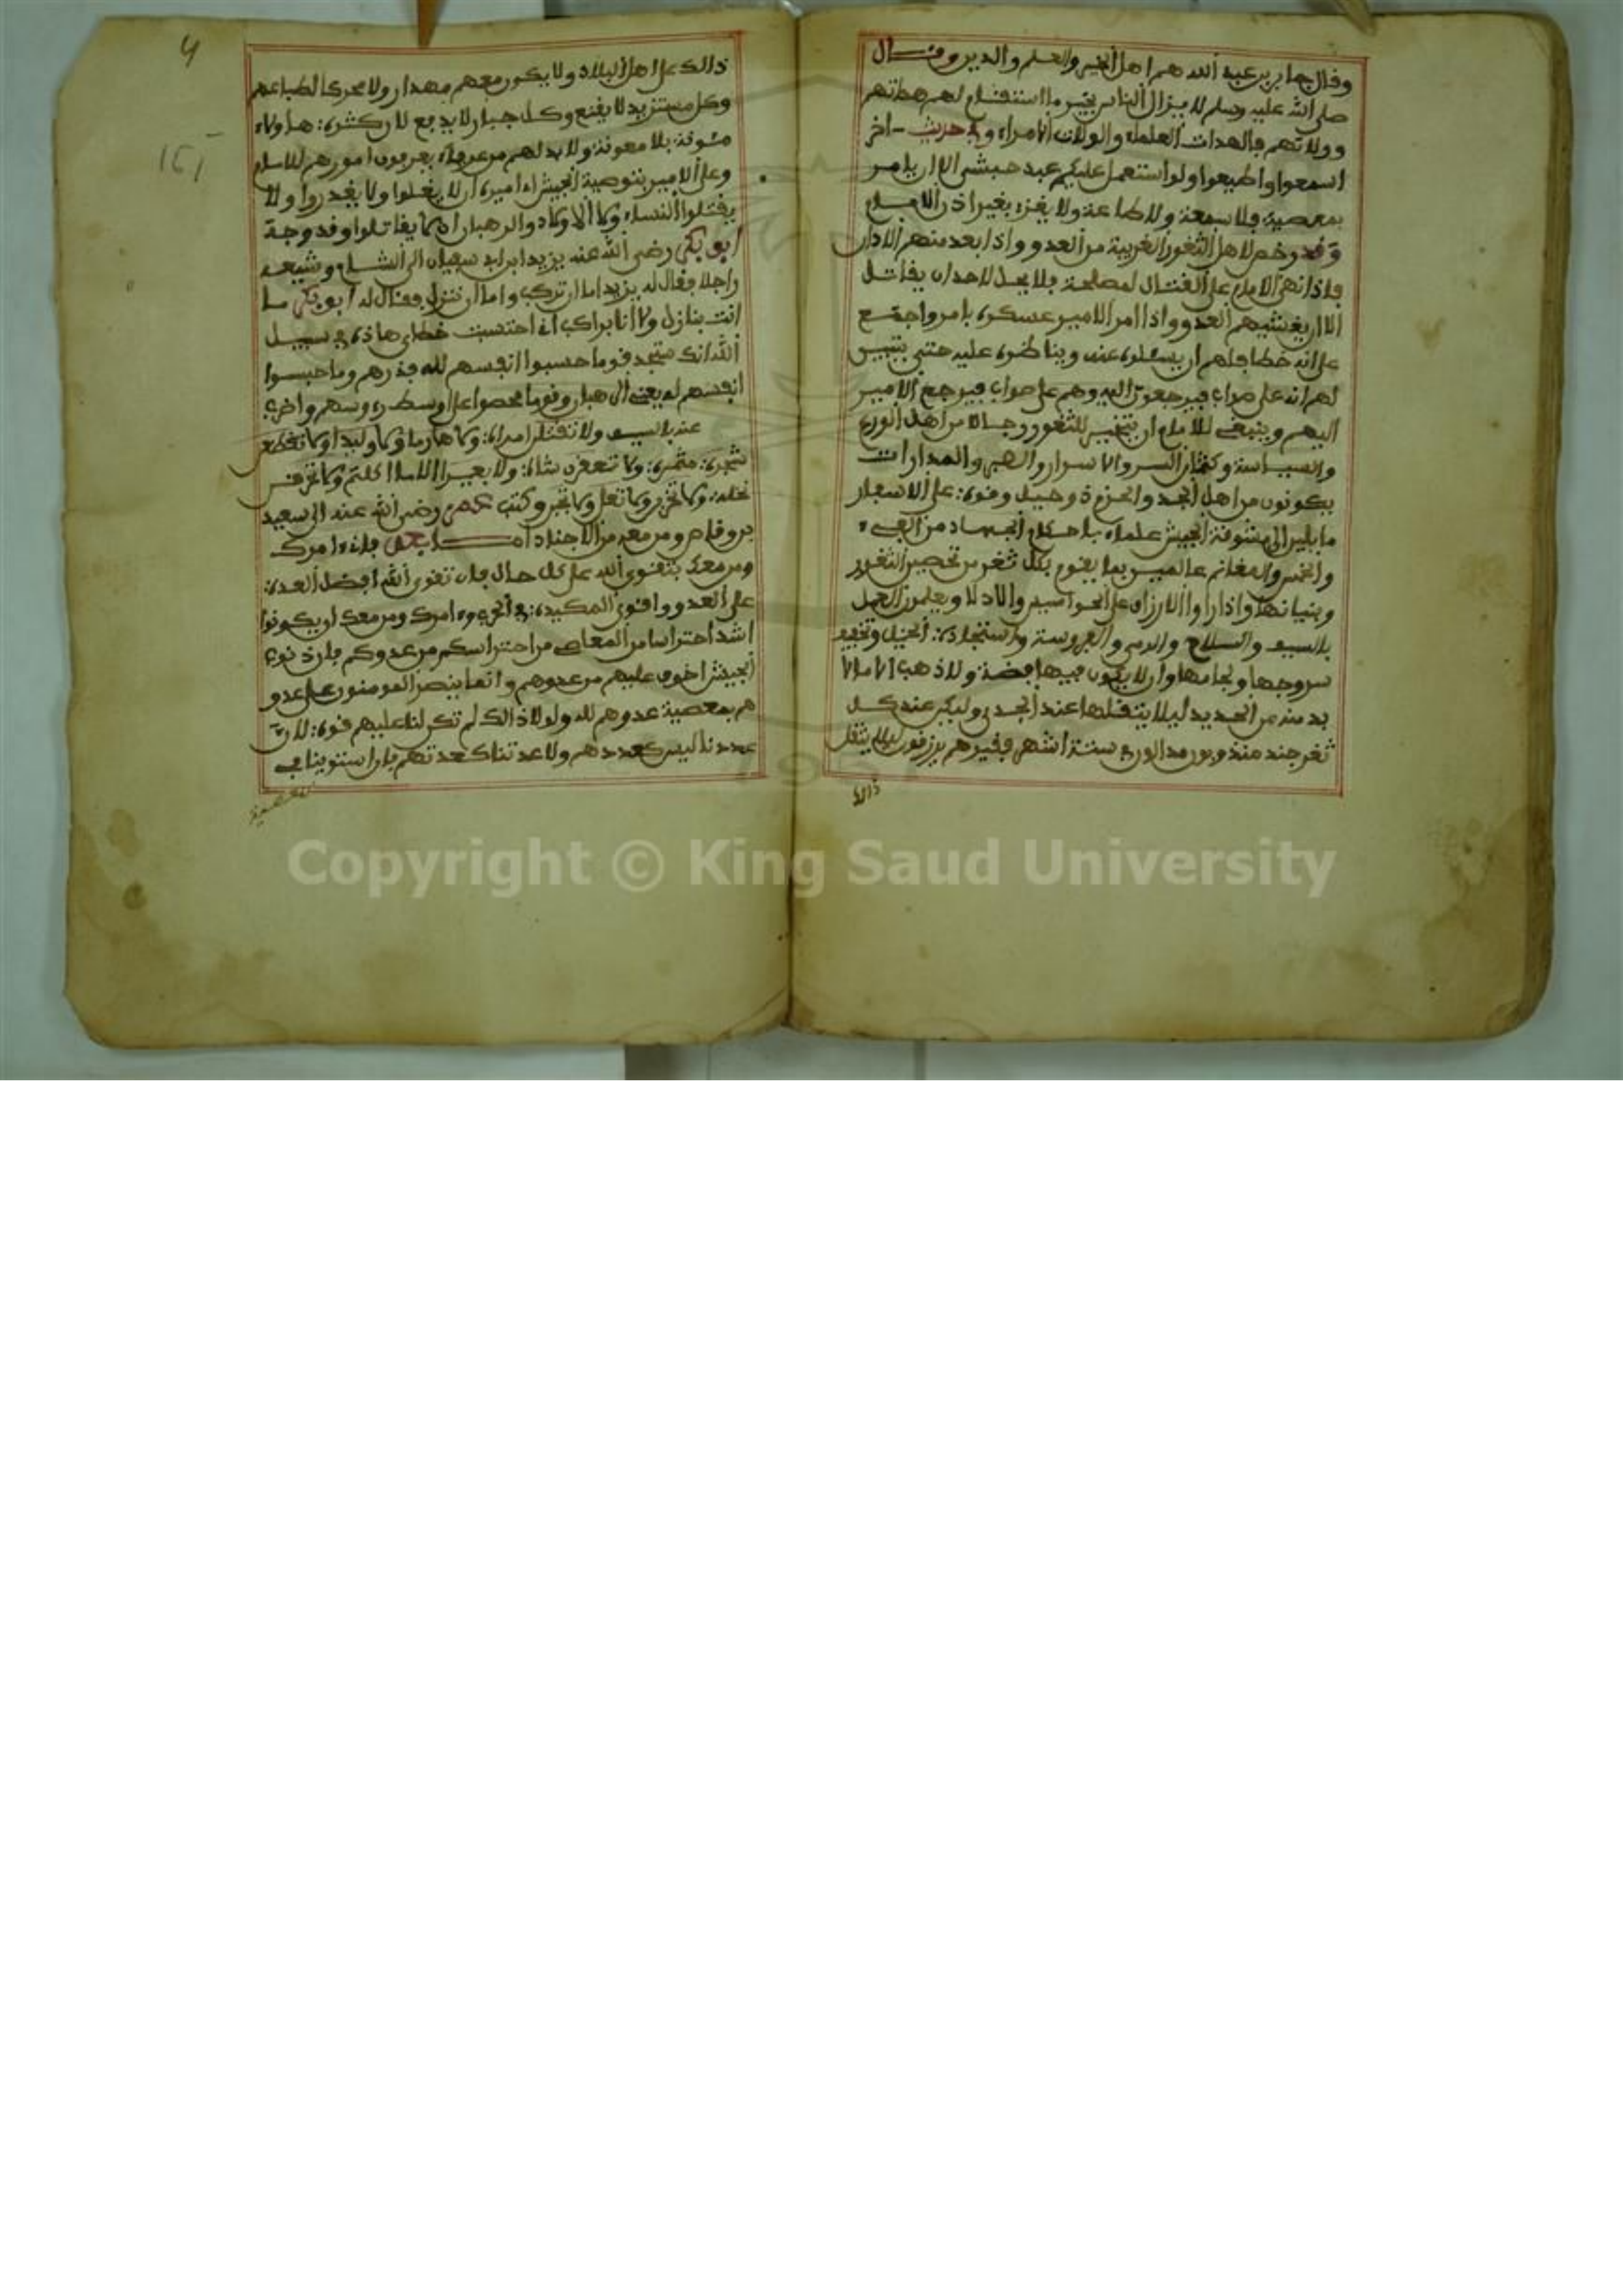 وقال جابر بن عبد الله هم اهل الخير والعلم والدين وقال
صلى الله عليه وسلم لا يزال الناس بخير ما استقام لهم هداتهم
وولاتهم فالهدات العلماء والولات الامراء وفي حديث اخر
اسمعوا واطيعوا ولو استعمل عليكم عبد حبشي الا ان يامر
بمعصية فلا سمعة ولا طاعة ولا يغزه بغير اذن الامام
وقد رخص لاهل الثغور الغربية من العدو واذا بعد منهم الاذن
فاذا نهى الامام على القتال لمصلحة فلا يحل لاحد ان يقاتل
الا ان يغشيهم العدو واذا امر الامير عسكره بامر واجتمع
على انه خطا فلهم ان يسئلوه عنه ويناظره عليه حتى يتبين
لهم انه على صواب فيرجعون اليه وهم على صواب فيرجع الامير
اليهم وينبغي للامام ان يتخير للثغور رجالا من اهل الورع
والسياسة وكتمان السر والاسرار والصبر والمدارات
يكونون من اهل الجد والحزم ذو حيل وقوة على الاسفار
مايلين الى مئونة الجيش علماء باحكام الجهاد من الفيء
والخمس والمغانم عالمين بما يقوم بكل ثغر من تحصين الثغور
وبنيانها واذا راوا الارزاق على الجواسيس والادلا ويعلمون العمل
بالسيف والسلاح والرمي والفروسة واستنجادة الخيل وتخفيف
سروجها ولجامها وان لا يكون فيها فضة ولا ذهب الا ما لا
بد منه من الحديد ليلا يثقلها عند الجري وليكن عند كل
ثغر جند مندوبون مدا لوري ستة اشهر فغيرهم يرزقون ليلا يثقل
ذالك
4
151
ذالك على اهل البلاد ولا يكون معهم مهدار ولا محرك الطباعهم
وكل مستزيد لا يقنع وكل جبار لا يدفع لان كثرة هاولاء
مئونة بلا معونة ولا بد لهم من عرفاء يعرفون امورهم للامام
وعلى الامير بتوصية الجيش اميره ان لا يغلوا ولا يغدروا ولا
يقتلوا النساء ولا الاولاد والرهبان اذ لم يقاتلوا وقد وجه
ابو بكر رضى الله عنه يزيد ابن ابي سفيان الى الشام وشيعه
راجلا فقال له يزيد اما ان تركب واما ان تنزل فقال له ابو بكر ما
انت بنازل ولا انا براكب اني احتسبت خطاي هاذه في سبيل
الله انك ستجد قوما حبسوا انفسهم لله فذرهم وما حبسوا
انفسهم له يعني الرهبان وقوما فحصوا على اوسط رءوسهم واضرب
عنه بالسيف ولا تقتلن امراة ولا هارما ولا وليدا ولا تقطعن
شجرة مثمرة ولا تعقرن شاة ولا بعيرا الا ما اكلتم ولا تحرقن
نخلة ولا تخرب ولا تغل ولا تجبن وكتب عمر رضى الله عنه الى سعيد
بن وقاص ومن معه من الاجناد اما بعد فانى امرك
ومن معك بتقوى الله على كل حال فان تقوى الله افضل العدة
على العدو واقوى المكيدة في الحرب وامرك ومن معك ان يكونوا
اشد احتراسا من المعاصى من احتراسكم من عدوكم فان ذنوب
الجيش اخوف عليهم من عدوهم وانما ينصر المومنون على عدو
هم بمعصية عدوهم لله ولولا ذالك لم تكن لنا عليهم قوة لان
عددنا ليس كعددهم ولا عدتنا كعدتهم فان استوينا في
المعصية
Copyright © King Saud University